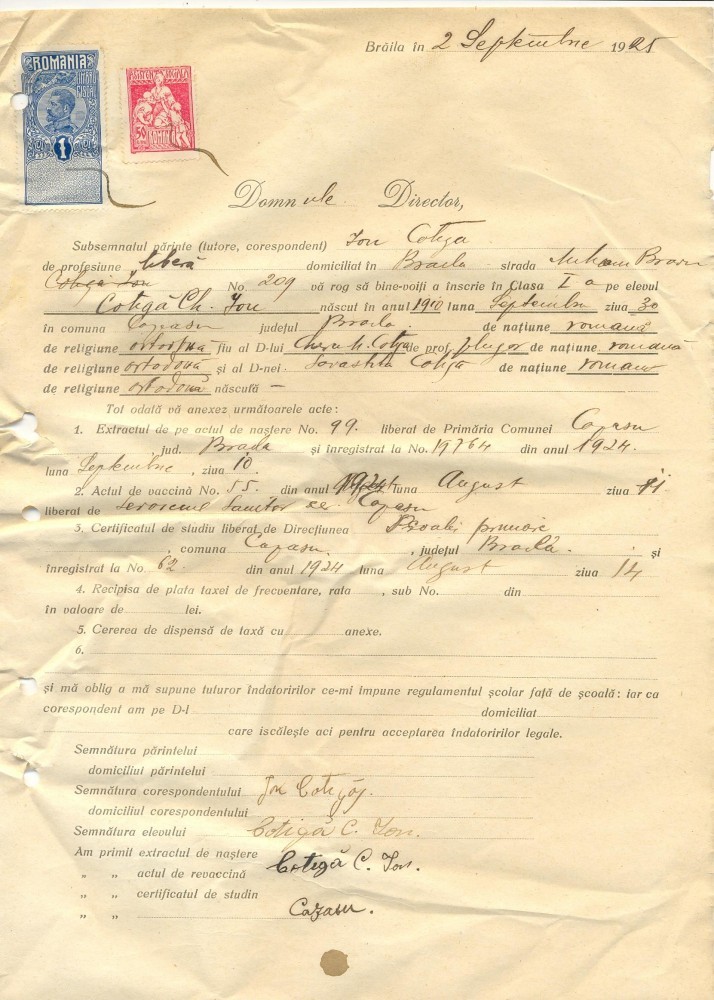 Brăila în 2 Septembrie 1925
ROMANIA
TIMBRU FISCAL
1
ASISTENȚA SOCIALĂ
50
BANI
ROMANIA
Domnule Director,
Subsemnatul părinte (tutore, corespondent) Ion Cotiga
de profesiune liberă domiciliat în Braila strada Mihai Bravu
Cotigă Ion No. 209 vă rog să bine-voiți a înscrie în Clasa I a pe elevul
Cotigă Ch. Ion născut în anul 1910 luna Septembr ziua 30
în comuna Cazasu județul Braila de națiune romană
de religiune ortodoxă fiu al D-lui de prof. plugar de națiune romană
de religiune ortodoxă și al D-nei Cotiga de națiune romană
de religiune ortodoxă născută —
Tot odată vă anexez următoarele acte :
1. Extractul de pe actul de naștere No. 99. liberat de Primăria Comunei Cazasu
jud. Braila și înregistrat la No. 19764 din anul 1924.
luna Septembrie, ziua 10.
2. Actul de vaccină No. 55. din anul 1924 luna August ziua 11
liberat de Sanitar Cazasu
3. Certificatul de studiu liberat de Direcțiunea Școalei primare
, comuna Cazasu. , județul Brailă. și
înregistrat la No. 62. din anul 1924 luna August ziua 14
4. Recipisa de plata taxei de frecventare, rata , sub No. din
în valoare de lei.
5. Cererea de dispensă de taxă cu anexe.
6.
și mă oblig a mă supune tuturor îndatoririlor ce-mi impune regulamentul școlar față de școală : iar ca
corespondent am pe D-l domiciliat
care iscălește aci pentru acceptarea îndatoririlor legale.
Semnătura părintelui
domiciliul părintelui
Semnătura corespondentului Ion Cotigă
domiciliul corespondentului
Semnătura elevului Cotigă C. Ion.
Am primit extractul de naștere
„ „ actul de revaccină Cotigă C. Ion.
„ „ certificatul de studin
„ „ Cazasu.